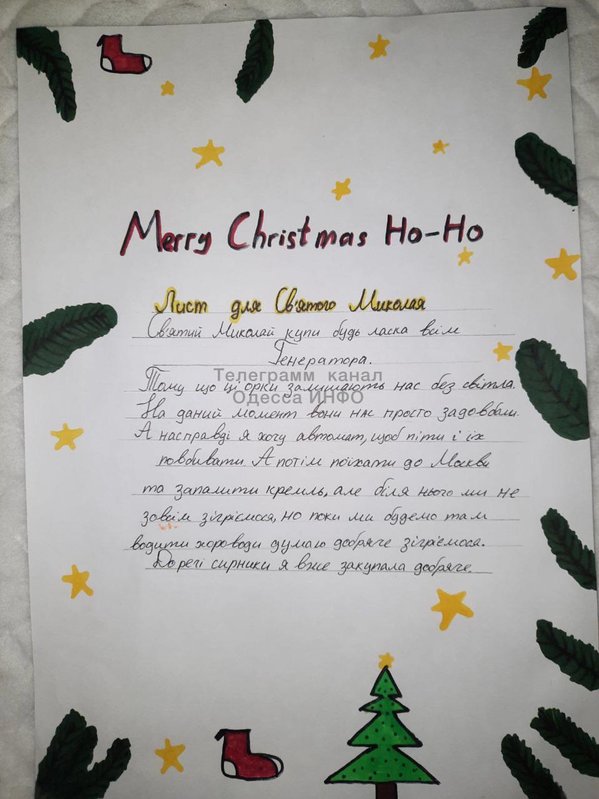 Merry Christmas Ho-Ho
Лист для Св'ятого Миколая
Св'ятий Миколай купи будь ласка всім
Генератора.
Телеграмм канал
Тому що ці орки залишають нас без світла.
Одесса ИНФО
На даний момент вони нас просто задовбали
А насправді я хочу автомат, щоб піти і їх
повбивати. А потім поїхати до Москви
та запалити кремль, але біля нього ми не
зовсім зігріємося, но поки ми будемо там
водити хороводи думаю добряче зігріємося.
До речі сирники я вже закупала добряче.